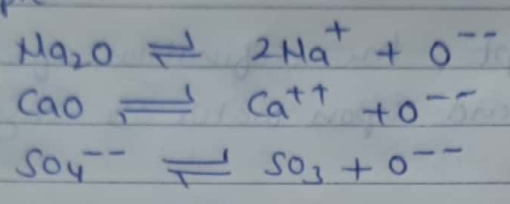 Na₂O ⇌ 2Na⁺ + O⁻⁻
CaO ⇌ Ca⁺⁺ + O⁻⁻
SO₄⁻⁻ ⇌ SO₃ + O⁻⁻